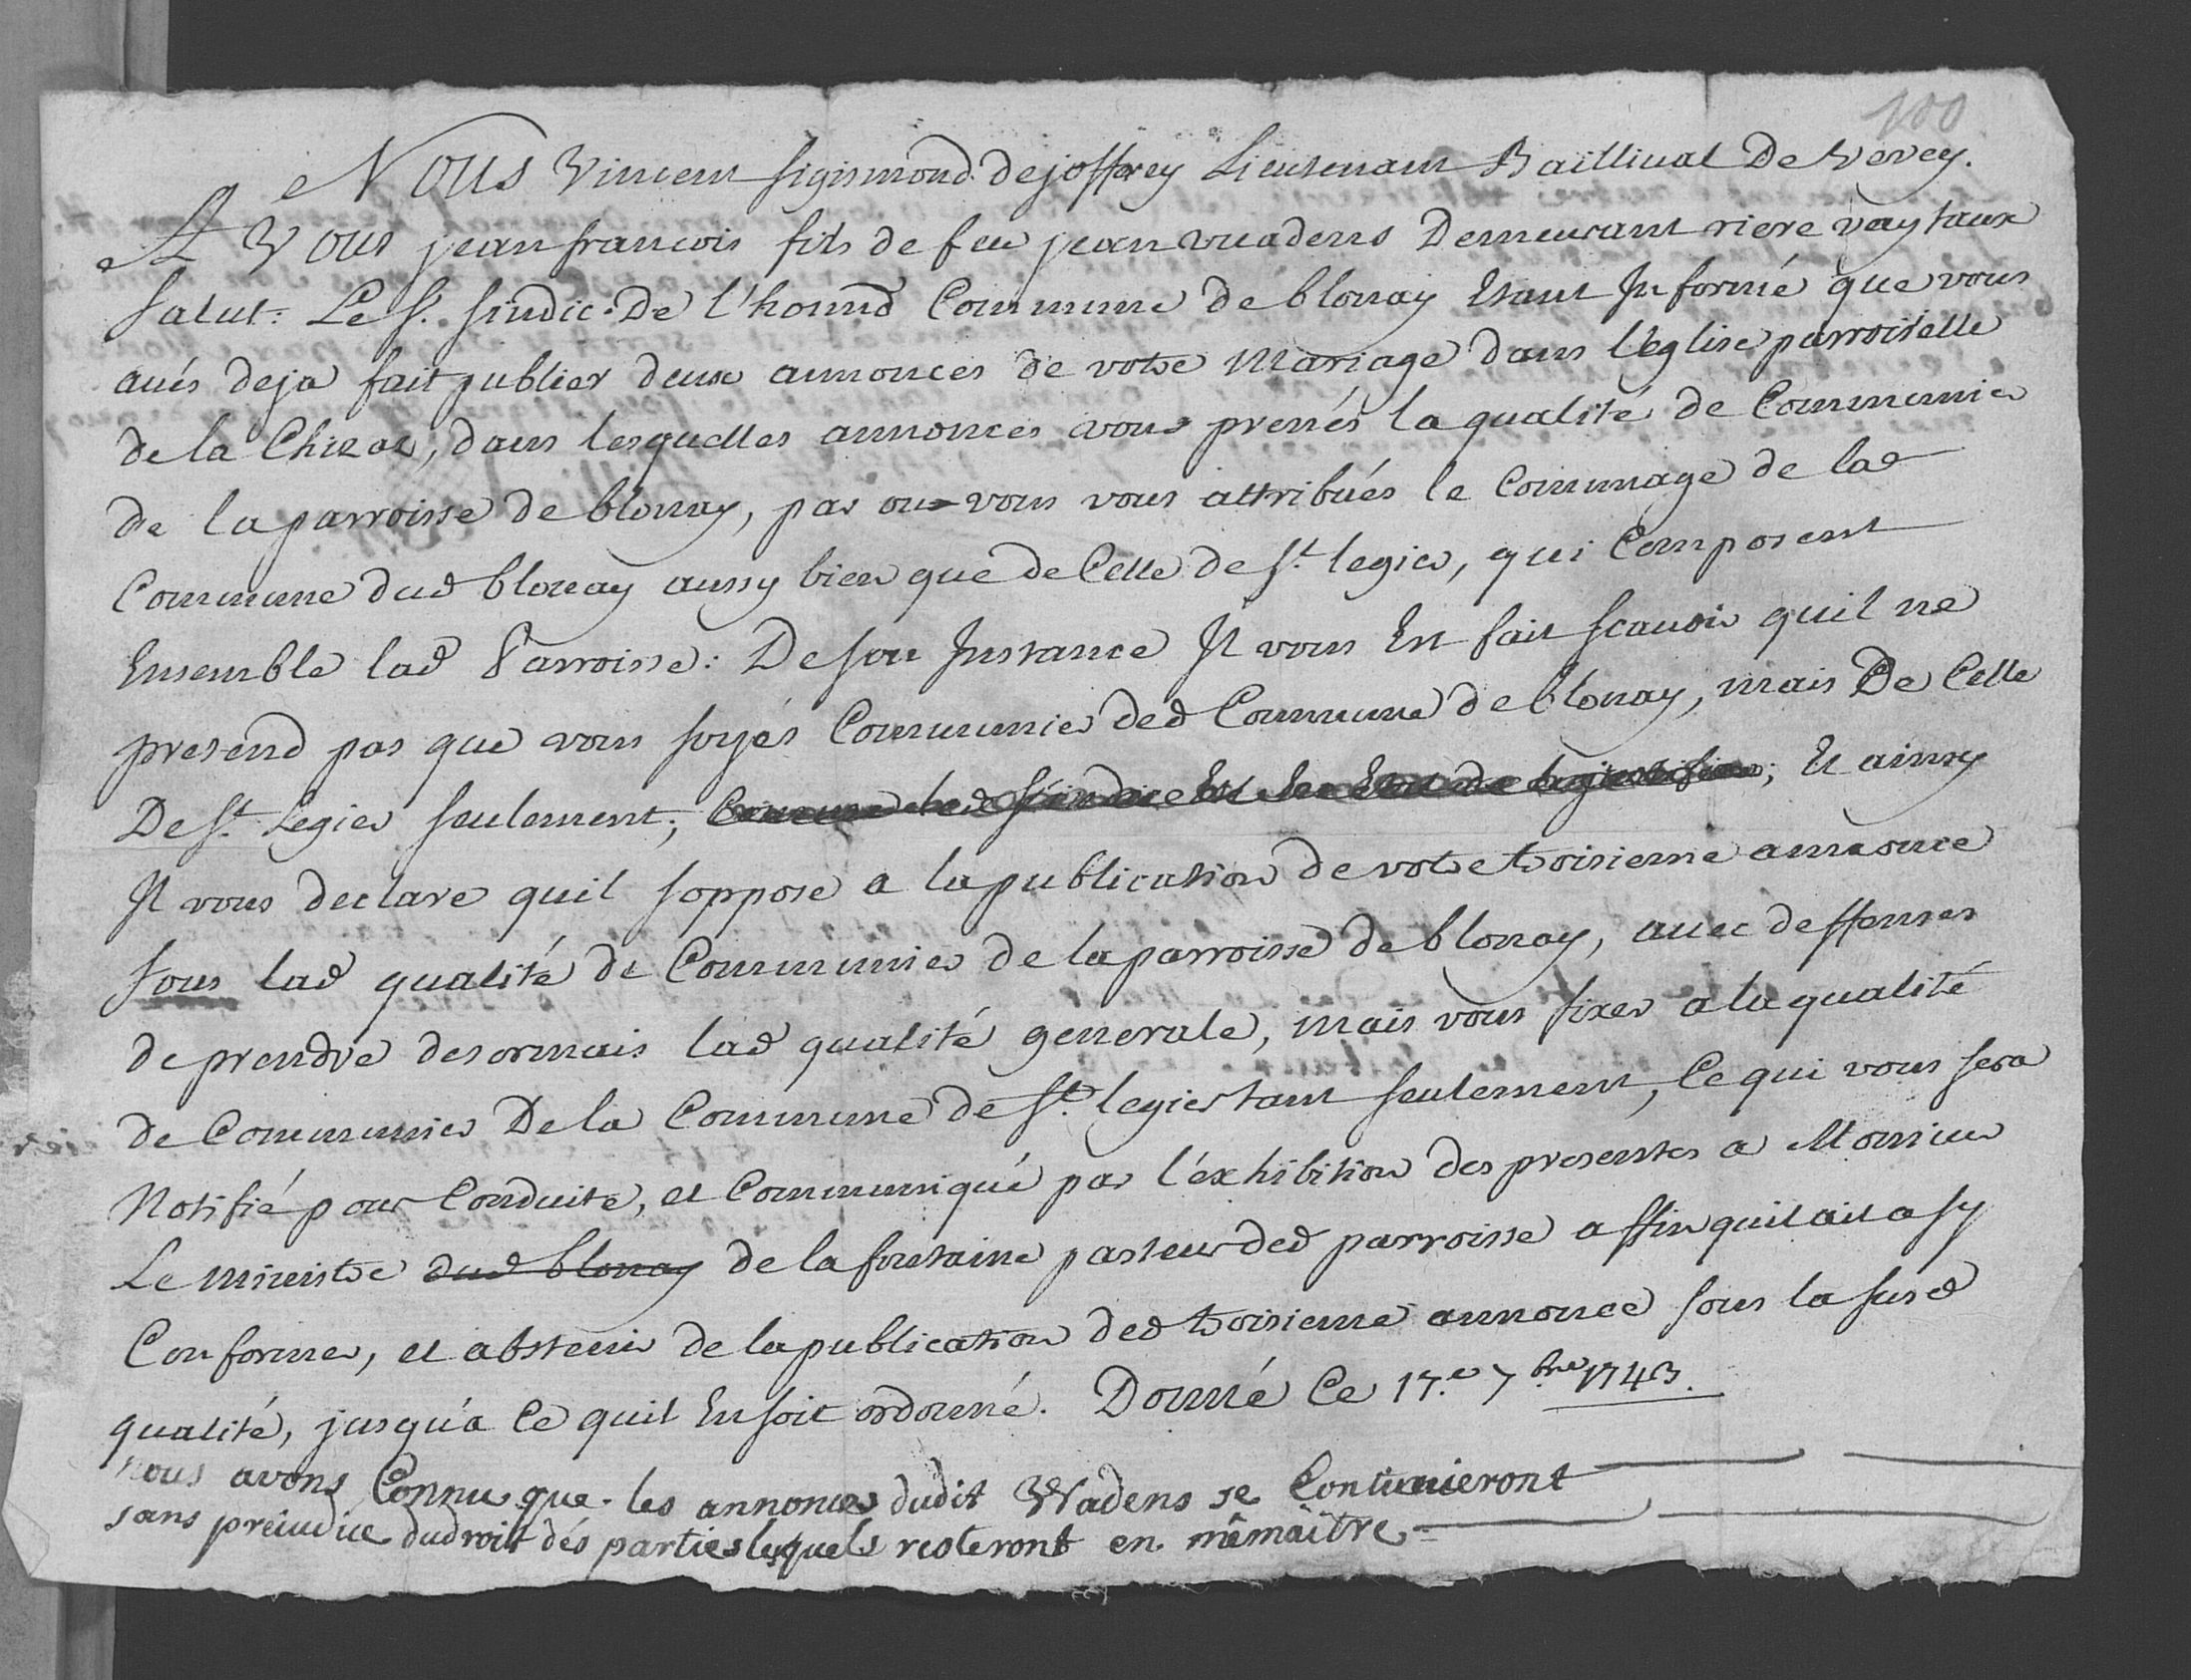 100
Nous Vincent sigismond dejoffrey Lieutenant Baillival De Vevey.
A Vous jean francois fils de feu jean vuadens Demeurant riere veytaux
salut: Le Sr. sindic De l'honnd Commune de blonay Etant Informé que vous
avés deja fait publier deux annonces de votre Mariage dans l'eglise parroiselle
de la Chizaz, dans lesquelles annonces vous prenés la qualité de Communier
de la parroisse de blonay, par ou vous vous attribués le Communage de lad
Commune dud blonay aussy bien que de Celle de St. legier, qui Composent
Ensemble lad Parroisse: De son Instance Il vous Est fait scavoir quil ne
pretend pas que vous soyés Communier ded Commune de blonay, mais De Celle
De St. Legier seulement; Comme led Sindic Est En Etat de le justifier; Et ainsy
Il vous declare quil soppose a la publication de votre troisieme annonce
sous lad qualité de Communier de la parroisse de blonay, avec deffenses
de prendre desormais lad qualité generale, mais vous fixer a la qualité
de Communier De la Commune de St. legier tant seulement, Ce qui vous sera
Notifié pour Conduite, et Communiqué par l'exhibition des presentes a Monsieur
Le ministre dud blonay de lafontaine pasteur ded parroisse affin quil ait a sy
Conformer, et abstenir de la publication ded troisieme annonce sous la susd
qualité, jusqu'a Ce quil En soit ordonné. Donné Ce 17.e 7bre 1743.
Nous avons Connu que les annonces dudit Wadens se Continueront
sans prejudice du droit des parties lesquels resteront en mêmaitre